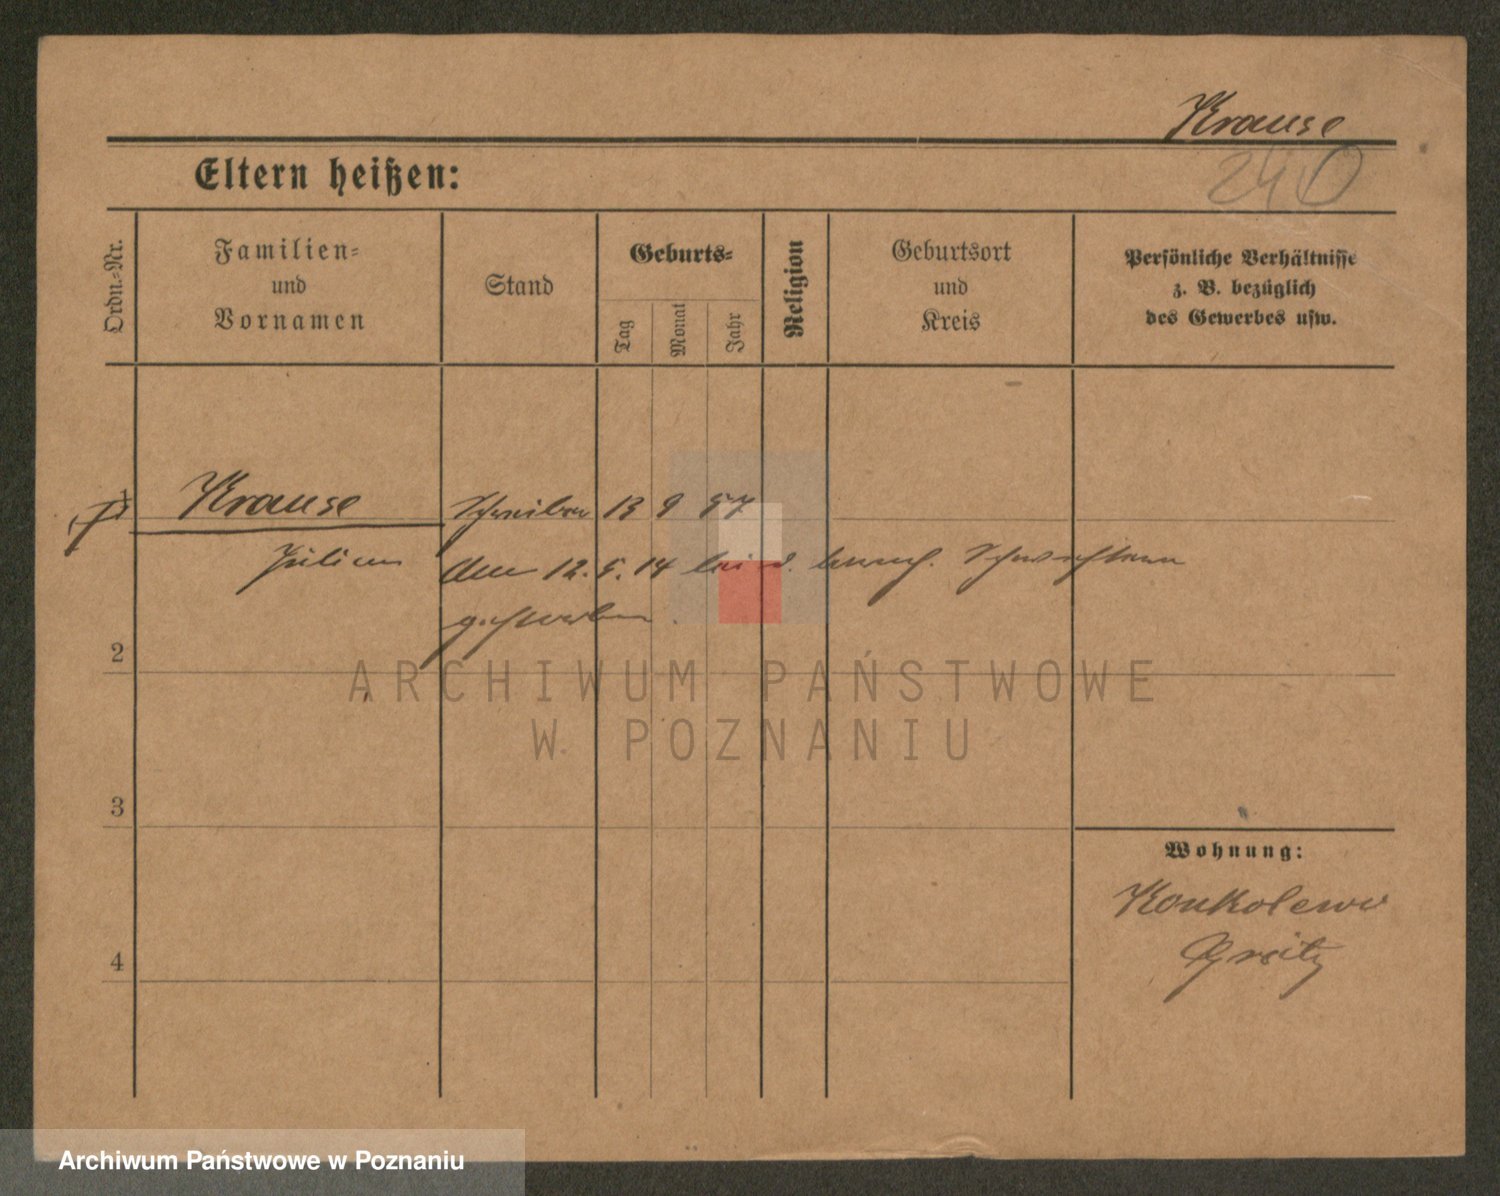 Krause
240
Eltern heißen:
Ordn.-Nr.
Familien-
und
Vornamen
Stand
Geburts-
Tag
Monat
Jahr
Religion
Geburtsort
und
Kreis
Persönliche Verhältnisse
z. B. bezüglich
des Gewerbes usw.
1
Krause
Schreiber 13 9 57
Julius
den 12. 5. 14 bei d. Schwestern
gestorben.
2
ARCHIWUM PAŃSTWOWE
W POZNANIU
3
Wohnung:
Konkolewo
4
Archiwum Państwowe w Poznaniu